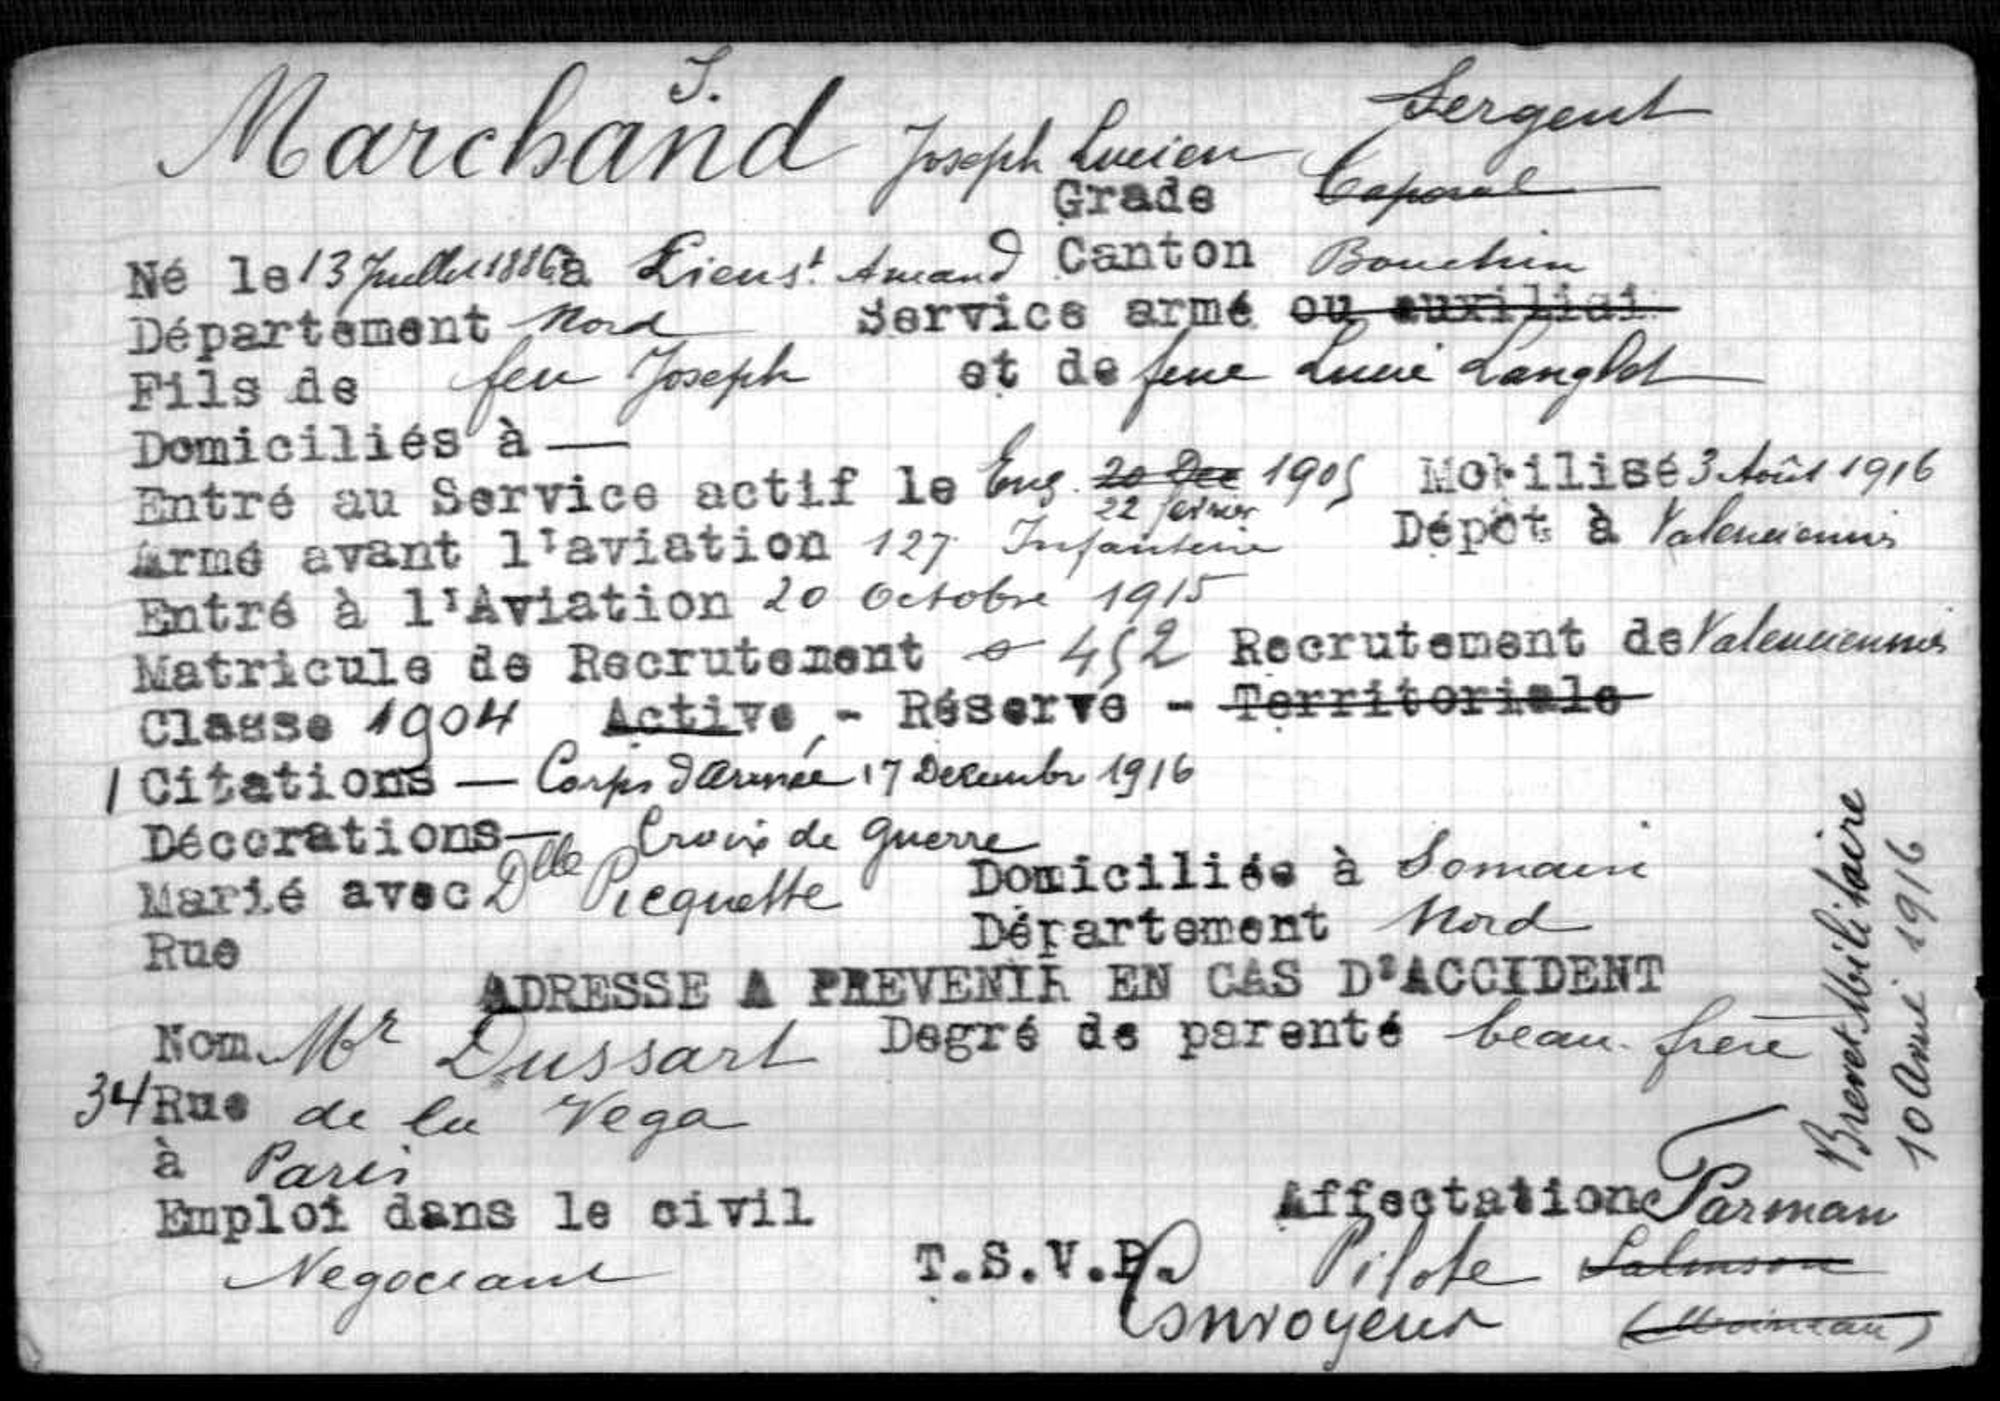 S.
Marchand Joseph Lucien Sergent
Grade Caporal
Né le 13 Juillet 1886 à Lieu St Amand Canton Bouchain
Département Nord Service armé ou auxiliai
Fils de feu Joseph et de feue Lucie Langlet
Domiciliés à —
Entré au Service actif le Eng. 20 Dec 1905 Mobilisé 3 Août 1916
22 février
Armé avant l'aviation 127 Infanterie Dépôt à Valenciennes
Entré à l'Aviation 20 Octobre 1915
Matricule de Recrutement 452 Recrutement de Valenciennes
Classe 1904 Active - Réserve - Territoriale
1 Citations — Corps d'Armée 17 Décembre 1916
Décorations — Croix de Guerre
Marié avec Dlle Picquette Domiciliée à Somain
Rue Département Nord
ADRESSE A PREVENIR EN CAS D'ACCIDENT
Nom Mr Dussart Degré de parenté beau-frère
34 Rue de la Vega
à Paris
Emploi dans le civil Affectation Farman
Negociant T.S.V.P. Pilote Salmson
Convoyeur (Moineau)
Brevet Militaire
10 1916